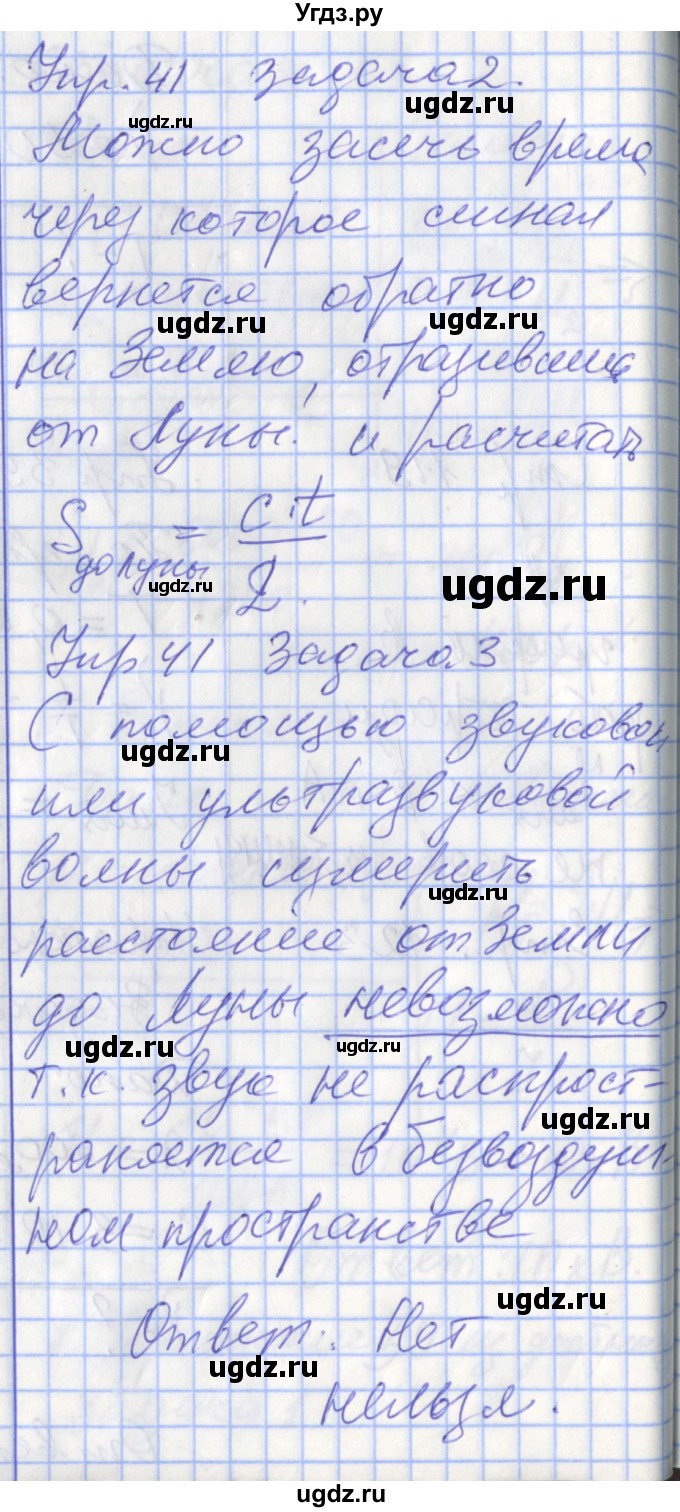 Угдз.ру
Упр. 41 задача 2.
ugdz.ru
ugdz.ru
Можно засечь время
через которое сигнал
вернется обратно
ugdz.ru
ugdz.ru
на Землю, отразившись
от Луны. и расчитать
S до Луны = c·t / 2.
ugdz.ru
ugdz.ru
Упр 41 Задача 3
С помощью звуковой
ugdz.ru
или ультразвуковой
волны измерить
ugdz.ru
расстояние от Земли
до Луны невозможно
ugdz.ru
ugdz.ru
т.к. звук не распрост-
ugdz.ru
раняется в безвоздуш-
ном пространстве
ugdz.ru
Ответ: Нет
ugdz.ru
нельзя.
ugdz.ru